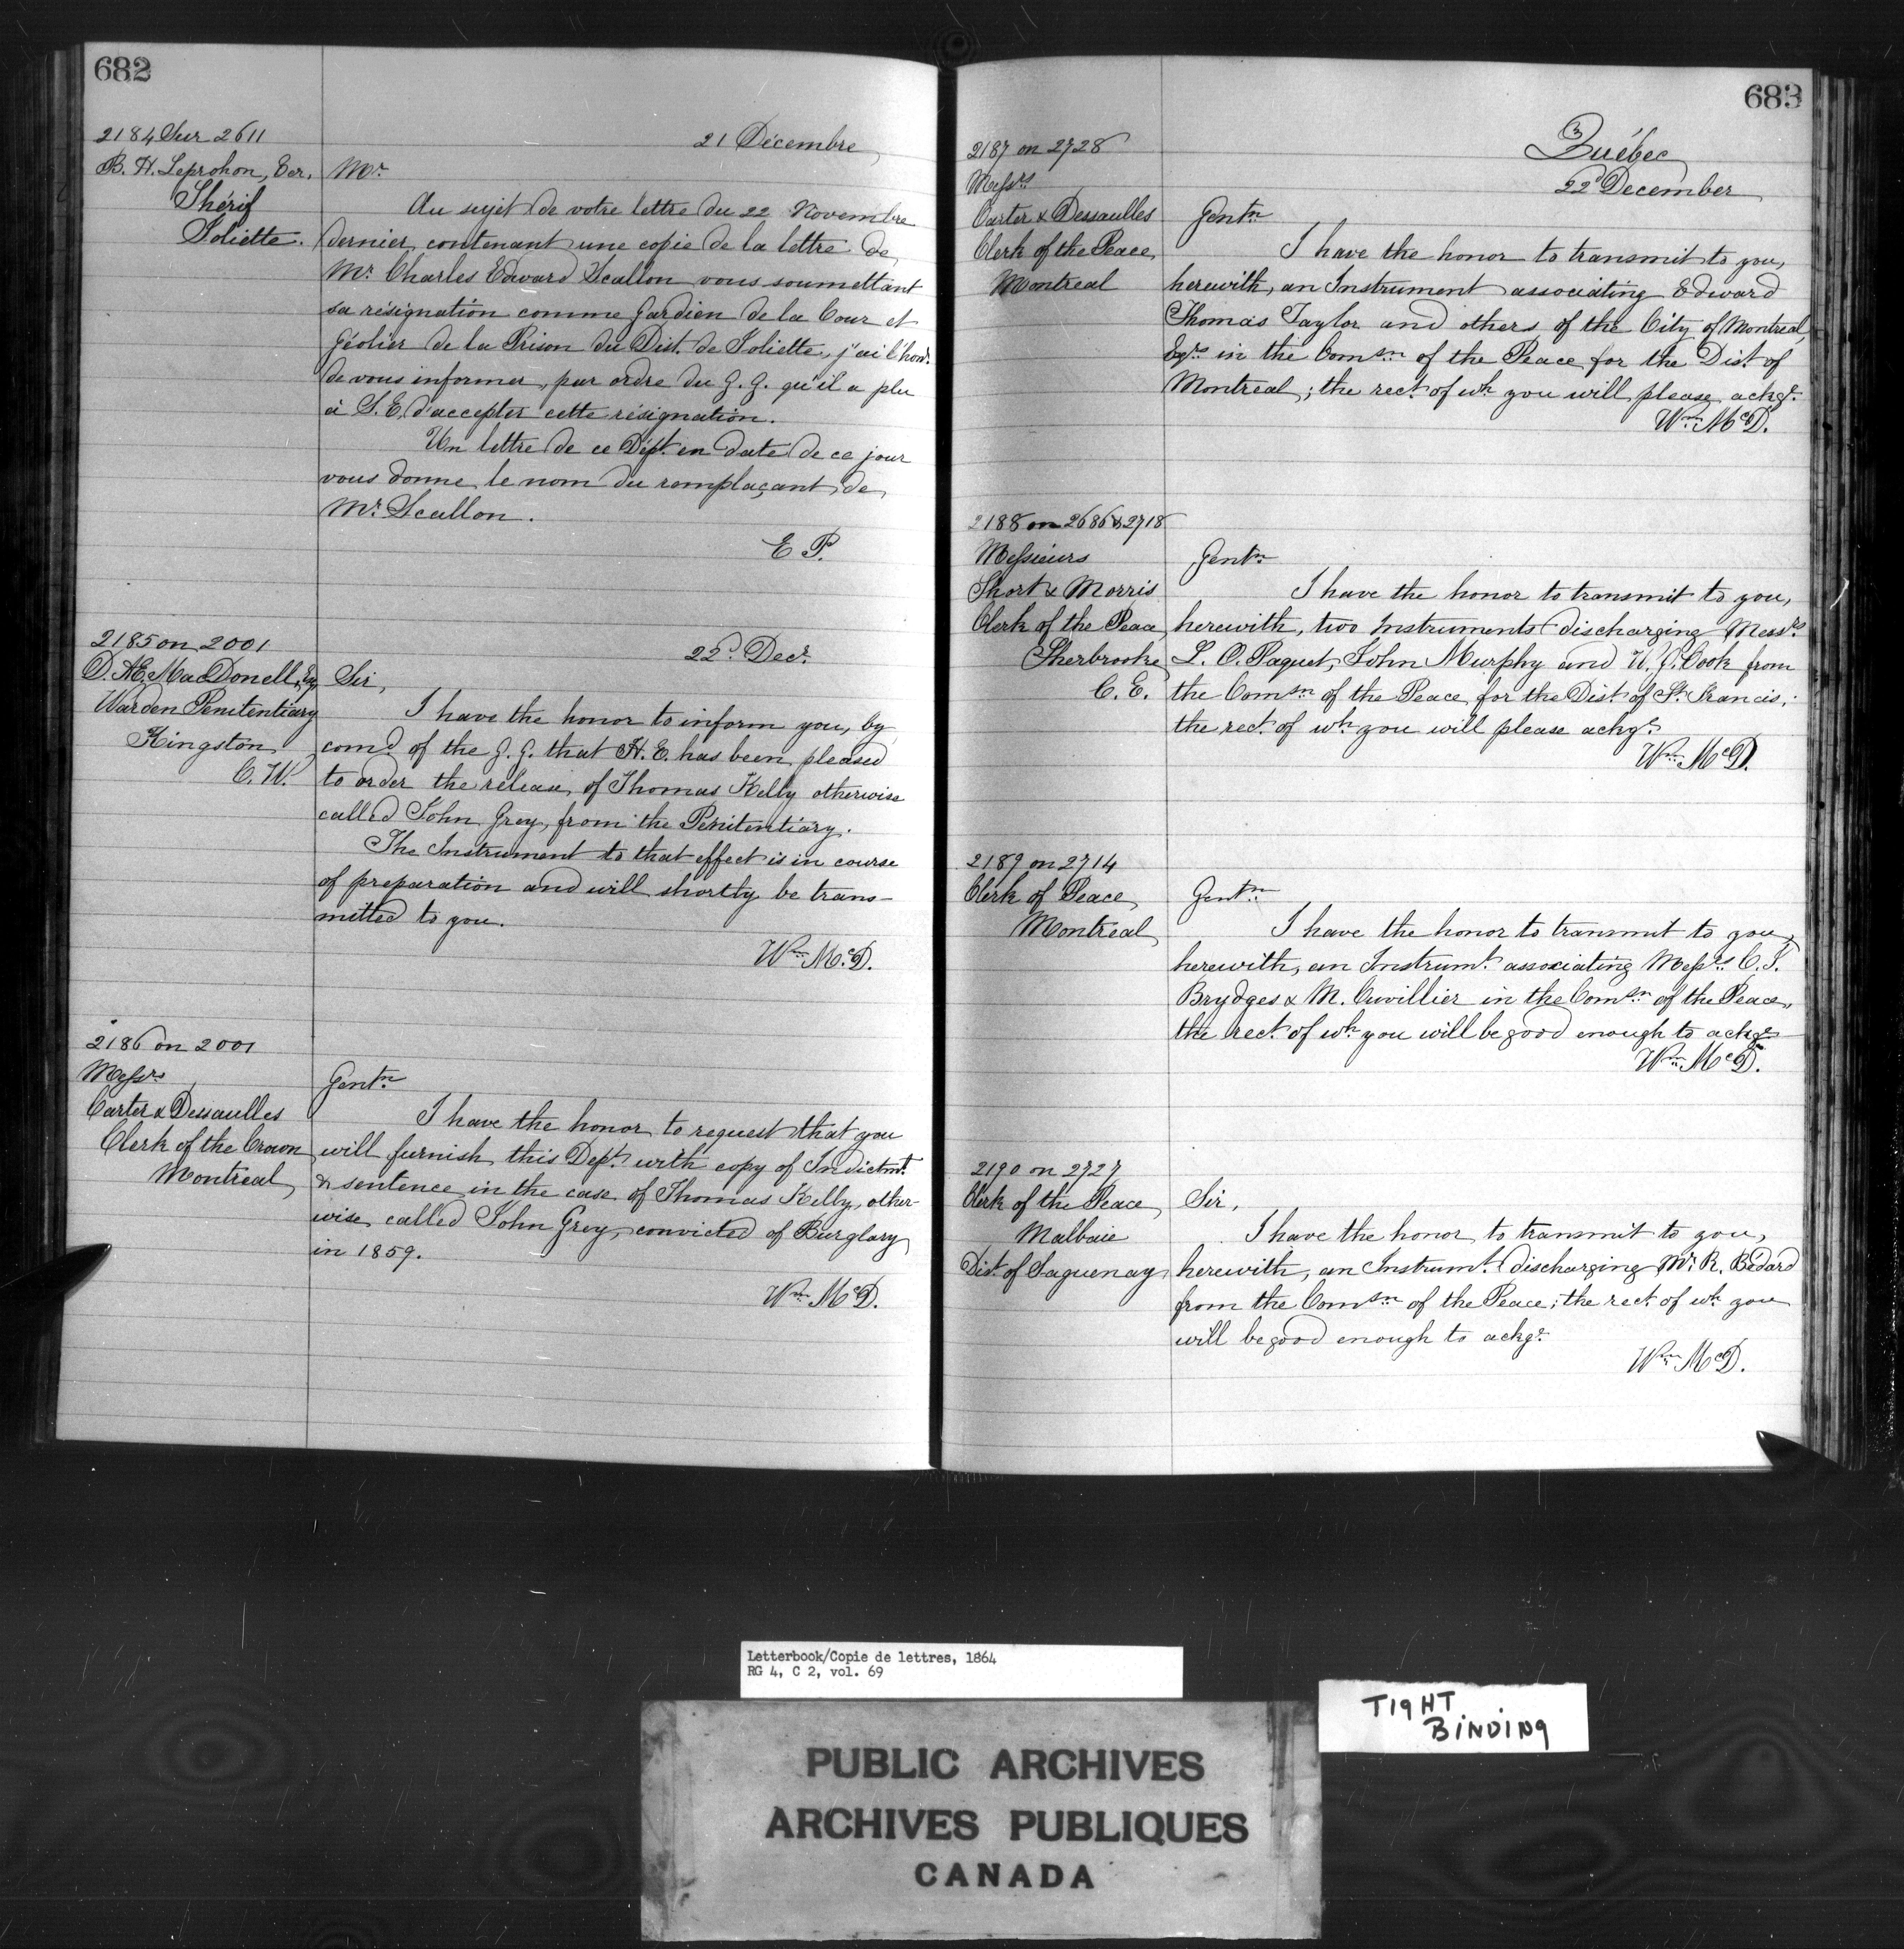 682
2184 Sur 2611
21 Décembre
B. H. Leprohon, Ecr.
Shérif
Joliette.
Mr.
Au sujet de votre lettre du 22 Novembre
dernier, contenant une copie de la lettre de
Mr. Charles Edward Scallon vous soumettant
sa résignation comme Gardien de la Cour et
Géolier de la Prison du Dist. de Joliette, j'ai l'honr.
de vous informer, par ordre du G. G. qu'il a plu
à S. E. d'accepter cette résignation.
Un lettre de ce Dépt. en date de ce jour
vous donne le nom du remplaçant de
Mr. Scallon.
E P.
2185 on 2001
22d. Decr.
D. AE. MacDonell, Esq
Warden Penitentiary
Kingston
C. W.
Sir,
I have the honor to inform you, by
comd. of the G. G. that H. E. has been pleased
to order the release of Thomas Kelly otherwise
called John Grey, from the Penitentiary.
The Instrument to that effect is in course
of preparation and will shortly be trans-
mitted to you.
Wm. McD.
2186 on 2001
Messrs
Carter & Dessaulles
Clerk of the Crown
Montreal
Gentn.
I have the honor to request that you
will furnish this Dept. with copy of Indictmt.
& sentence in the case of Thomas Kelly, other-
wise called John Grey, convicted of Burglary
in 1859.
Wm. McD.
683
Québec
22d December
2187 on 2728
Messrs
Carter & Dessaulles
Clerk of the Peace
Montreal
Gentn.
I have the honor to transmit to you,
herewith, an Instrument associating Edward
Thomas Taylor and others of the City of Montreal,
Esqrs. in the Comsn. of the Peace for the Dist. of
Montreal; the rect. of wh. you will please ackge.
Wm. McD.
2188 on 2686 & 2718
Messieurs
Short & Morris
Clerk of the Peace
Sherbrooke
C. E.
Gentn.
I have the honor to transmit to you,
herewith, two Instruments discharging Messrs.
L. O. Paquet, John Murphy and W. J. Cook from
the Comsn. of the Peace for the Dist. of St. Francis;
the rect. of wh. you will please ackge.
Wm. McD.
2189 on 2714
Clerk of Peace
Montréal
Gentn.
I have the honor to transmit to you,
herewith, an Instrumt. associating Messrs C. J.
Brydges & M. Cuvillier in the Comsn. of the Peace,
the rect. of wh. you will be good enough to ackge.
Wm. McD.
2190 on 2727
Clerk of the Peace
Malbaie
Dist. of Saguenay
Sir,
I have the honor to transmit to you,
herewith, an Instrumt. discharging Mr. R. Bédard
from the Comsn. of the Peace; the rect. of wh. you
will be good enough to ackge.
Wm. McD.
Letterbook/Copie de lettres, 1864
RG 4, C 2, vol. 69
TIGHT
BINDING
PUBLIC ARCHIVES
ARCHIVES PUBLIQUES
CANADA